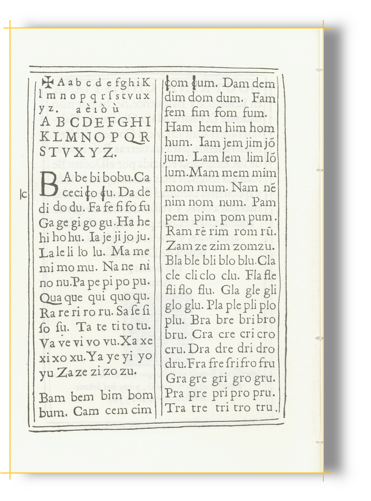 ✠ A a b c d e f g h i K
l m n o p q r ſ s t v u x
y z . a è i ò ù
A B C D E F G H I
K L M N O P Q R
S T V X Y Z.
BA be bi bobu. Ca
ceci ço çu. Da de
di do du. Fa fe fi fo fu
Ga ge gi go gu. Ha he
hi ho hu. Ia je ji jo ju.
La le li lo lu. Ma me
mi mo mu. Na ne ni
no nu. Pa pe pi po pu.
Qua que qui quo qu.
Ra re ri ro ru. Sa ſe ſi
ſo ſu. Ta te ti to tu.
Va ve vi vo vu. Xa xe
xi xo xu. Ya ye yi yo
yu Za ze zi zo zu.
Bam bem bim bom
bum. Cam cem cim
çom çum. Dam dem
dim dom dum. Fam
fem fim fom fum.
Ham hem him hom
hum. Iam jem jim jõ
jum. Lam lem lim lõ
lum. Mam mem mim
mom mum. Nam nẽ
nim nom num. Pam
pem pim pom pum.
Ram rẽ rim rom rũ.
Zam ze zim zomzu.
Bla ble bli blo blu. Cla
cle cli clo clu. Fla fle
fli flo flu. Gla gle gli
glo glu. Pla ple pli plo
plu. Bra bre bri bro
bru. Cra cre cri cro
cru. Dra dre dri dro
dru. Fra fre fri fro fru
Gra gre gri gro gru.
Pra pre pri pro pru.
Tra tre tri tro tru.